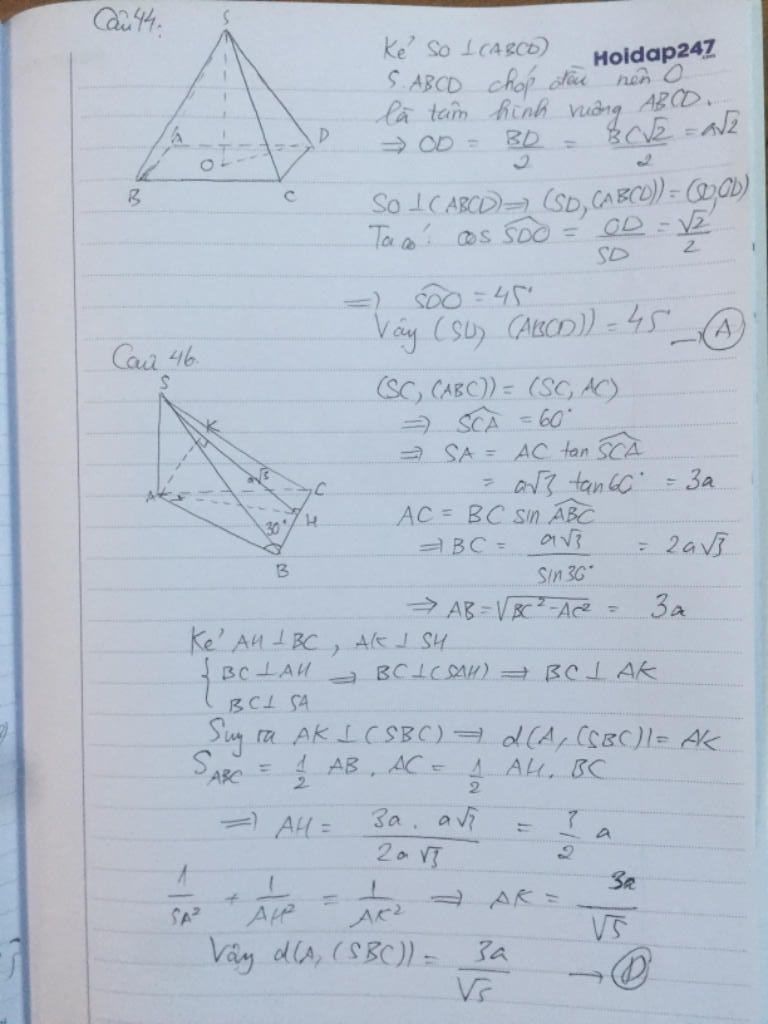 Câu 44:
S
A
D
O
B
C
Hoidap247
.com
Kẻ SO ⊥ (ABCD)
S.ABCD chóp đều nên O
là tâm hình vuông ABCD.
⇒ OD = BD/2 = BC√2/2 = a√2
SO ⊥ (ABCD) ⇒ (SD, (ABCD)) = (SD, OD)
Ta có: cos SDO = OD/SD = √2/2
⇒ SDO = 45°
Vậy (SD, (ABCD)) = 45° → A
Câu 46.
S
K
a√3
A
C
H
30°
B
(SC, (ABC)) = (SC, AC)
⇒ SCA = 60°
⇒ SA = AC tan SCA
= a√3 tan 60° = 3a
AC = BC sin ABC
⇒ BC = a√3/sin 30° = 2a√3
⇒ AB = √(BC² - AC²) = 3a
Kẻ AH ⊥ BC, AK ⊥ SH
{ BC ⊥ AH ⇒ BC ⊥ (SAH) ⇒ BC ⊥ AK
BC ⊥ SA
Suy ra AK ⊥ (SBC) ⇒ d(A, (SBC)) = AK
S_ABC = 1/2 AB . AC = 1/2 AH . BC
⇒ AH = 3a . a√3/2a√3 = 3/2 a
1/SA² + 1/AH² = 1/AK² ⇒ AK = 3a/√5
Vậy d(A, (SBC)) = 3a/√5 → D